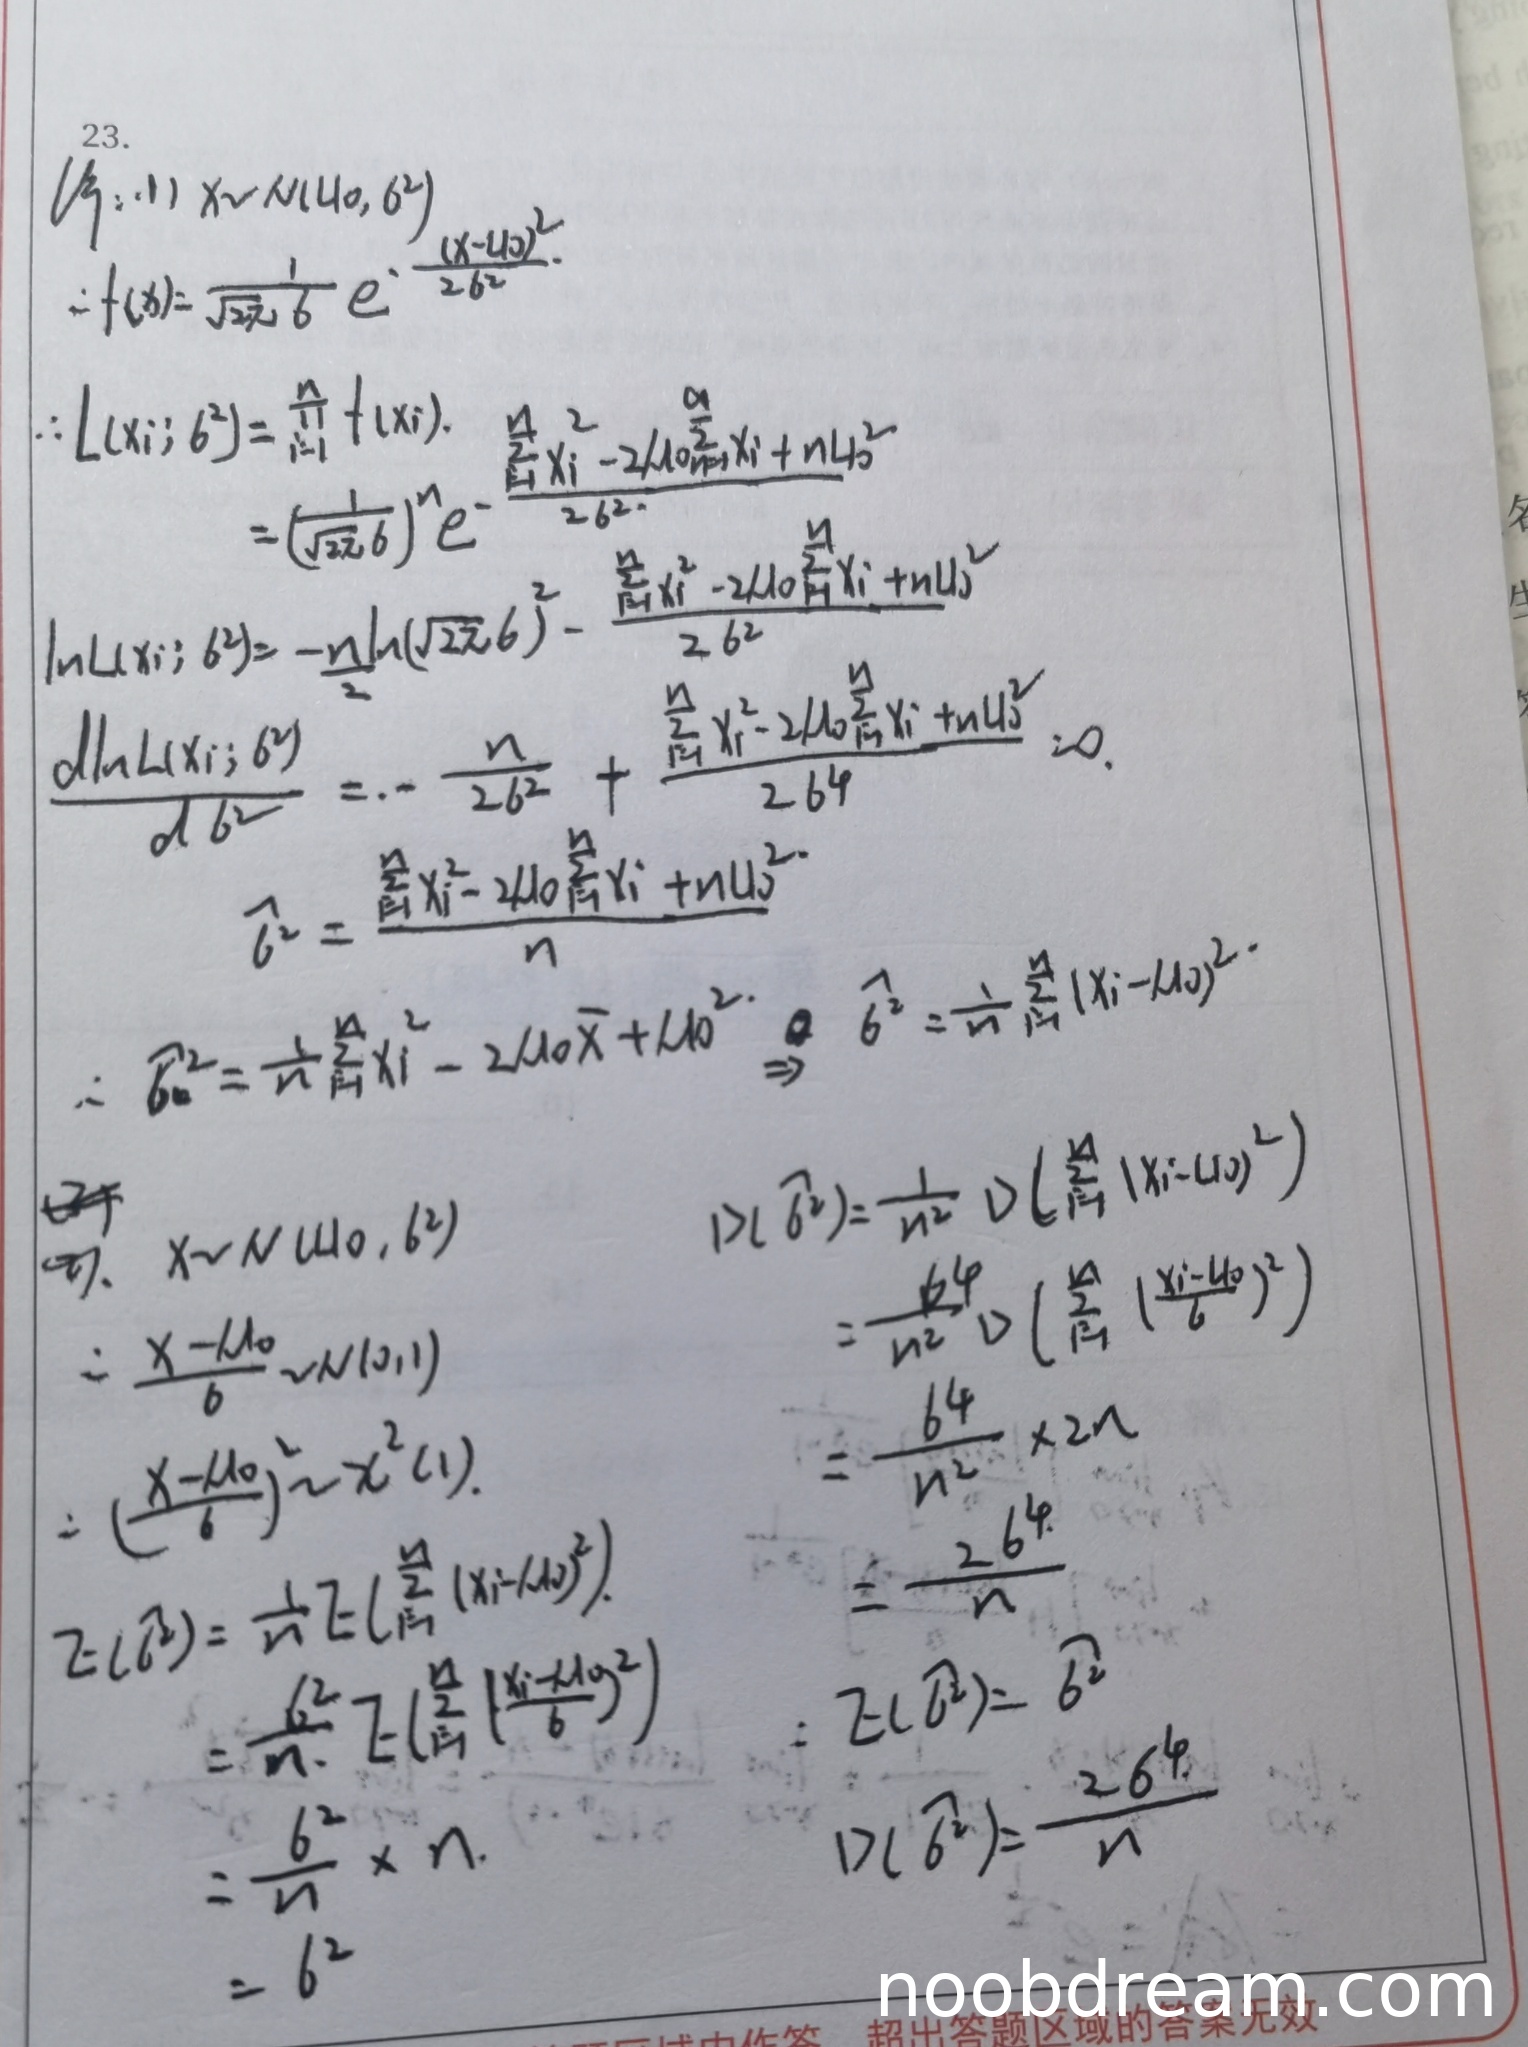 23.
解:(1) X~N(μ0, σ²)
∴ f(x)= 1/(√2π σ) e^-(x-μ0)²/2σ².
∴ L(xi; σ²)= ∏(i=1→n) f(xi).
= (1/(√2π σ))ⁿ e^-(∑(i=1→n) xi² - 2μ0 ∑ xi + nμ0²)/2σ².
lnL(xi; σ²)= -n/2 ln(√2π σ)² - (∑(i=1→n) xi² - 2μ0 ∑(i=1→n) xi + nμ0²)/2σ²
dlnL(xi; σ²)/dσ² = - n/2σ² + (∑(i=1→n) xi² - 2μ0 ∑(i=1→n) xi + nμ0²)/2σ⁴ =0.
σ̂² = (∑(i=1→n) xi² - 2μ0 ∑(i=1→n) xi + nμ0²)/n
∴ σ̂² = 1/n ∑(i=1→n) xi² - 2μ0 x̄ + μ0². ⇒ σ̂² = 1/n ∑(i=1→n) (xi-μ0)².
X~N(μ0, σ²)
∴ (X-μ0)/σ ~N(0,1)
∴ ((X-μ0)/σ)² ~ χ²(1).
E(σ̂²)= 1/n E(∑(i=1→n) (xi-μ0)²).
= σ²/n. E(∑(i=1→n) ((xi-μ0)/σ)²)
= σ²/n × n.
= σ²
D(σ̂²)= 1/n² D(∑(i=1→n) (xi-μ0)²)
= σ⁴/n² D(∑(i=1→n) ((xi-μ0)/σ)²)
= σ⁴/n² ×2n
= 2σ⁴/n
∴ E(σ̂²)= σ̂²
D(σ̂²)= 2σ⁴/n
noobdream.com
超出答题区域的答案无效